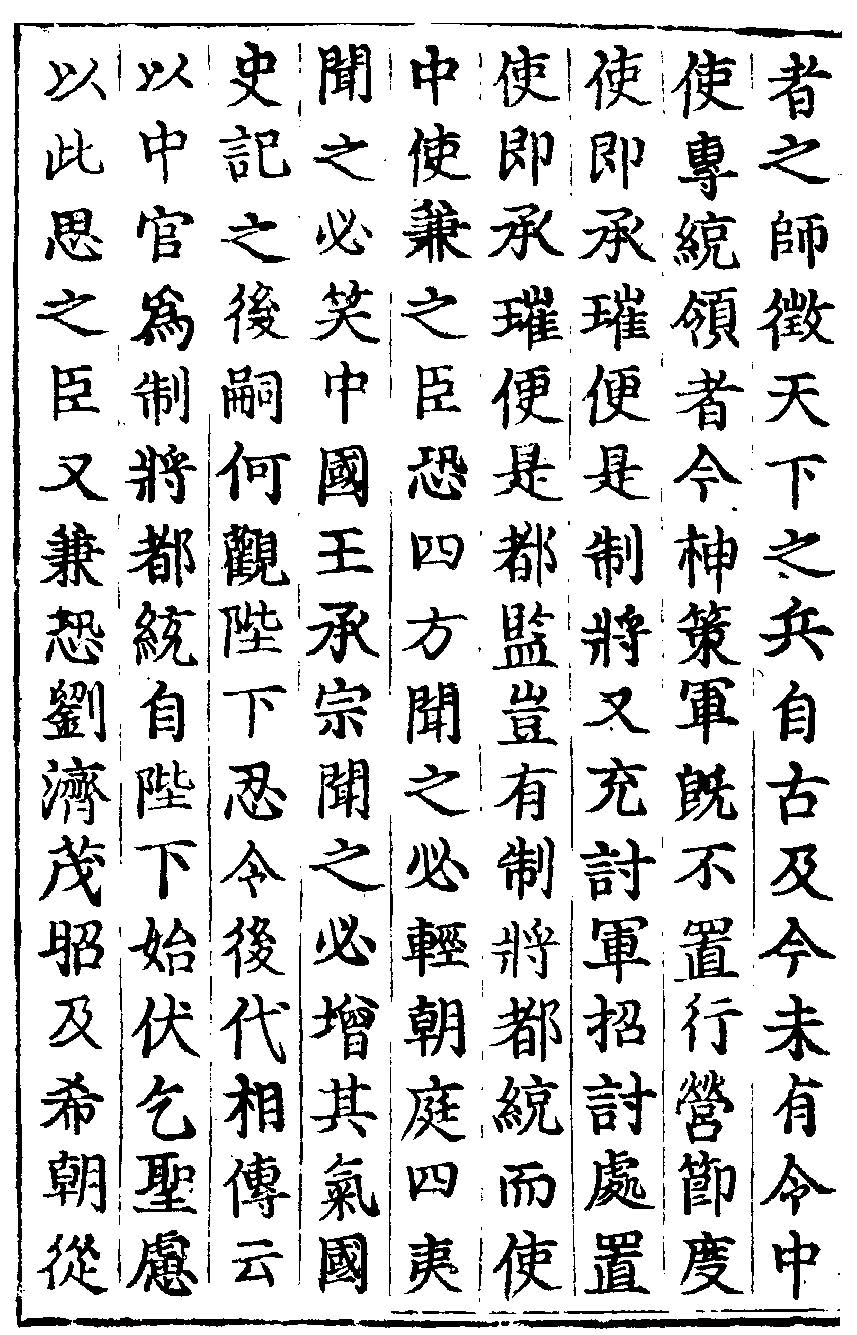 者之師徵天下之兵自古及今未有令中
使專統領者今神策軍既不置行營節度
使即承璀便是制將又充討軍招討處置
使即承璀便是都監豈有制將都統而使
中使兼之臣恐四方聞之必輕朝庭四夷
聞之必笑中國王承宗聞之必增其氣國
史記之後嗣何觀陛下忍令後代相傳云
以中官爲制將都統自陛下始伏乞聖慮
以此思之臣又兼恐劉濟茂昭及希朝從